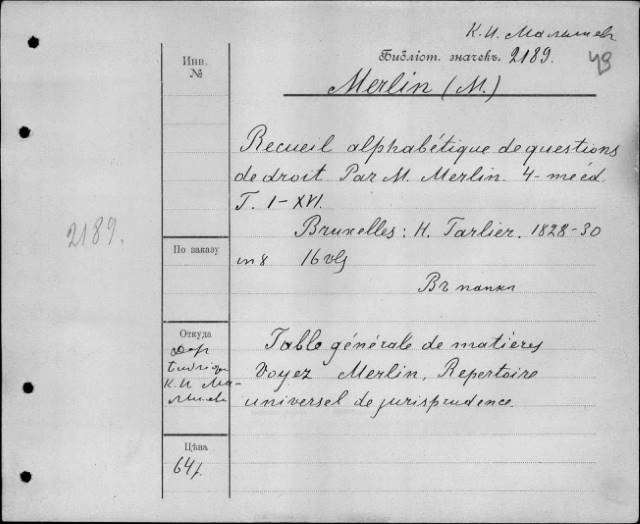 К. И. Малышев
Библіот. значекъ. 2189.
Инв.
№
Merlin (M.)
Recueil alphabétique de questions
de droit Par M. Merlin. 4-me éd.
T. I-XVI.
2189.
Bruxelles: H. Tarlier. 1828-30
По заказу
in 8 16 vls
Въ папки
Откуда
Table générale de matières
Voyez Merlin, Repertoire
К. И. Ма-
universel de jurisprudence.
Цѣна